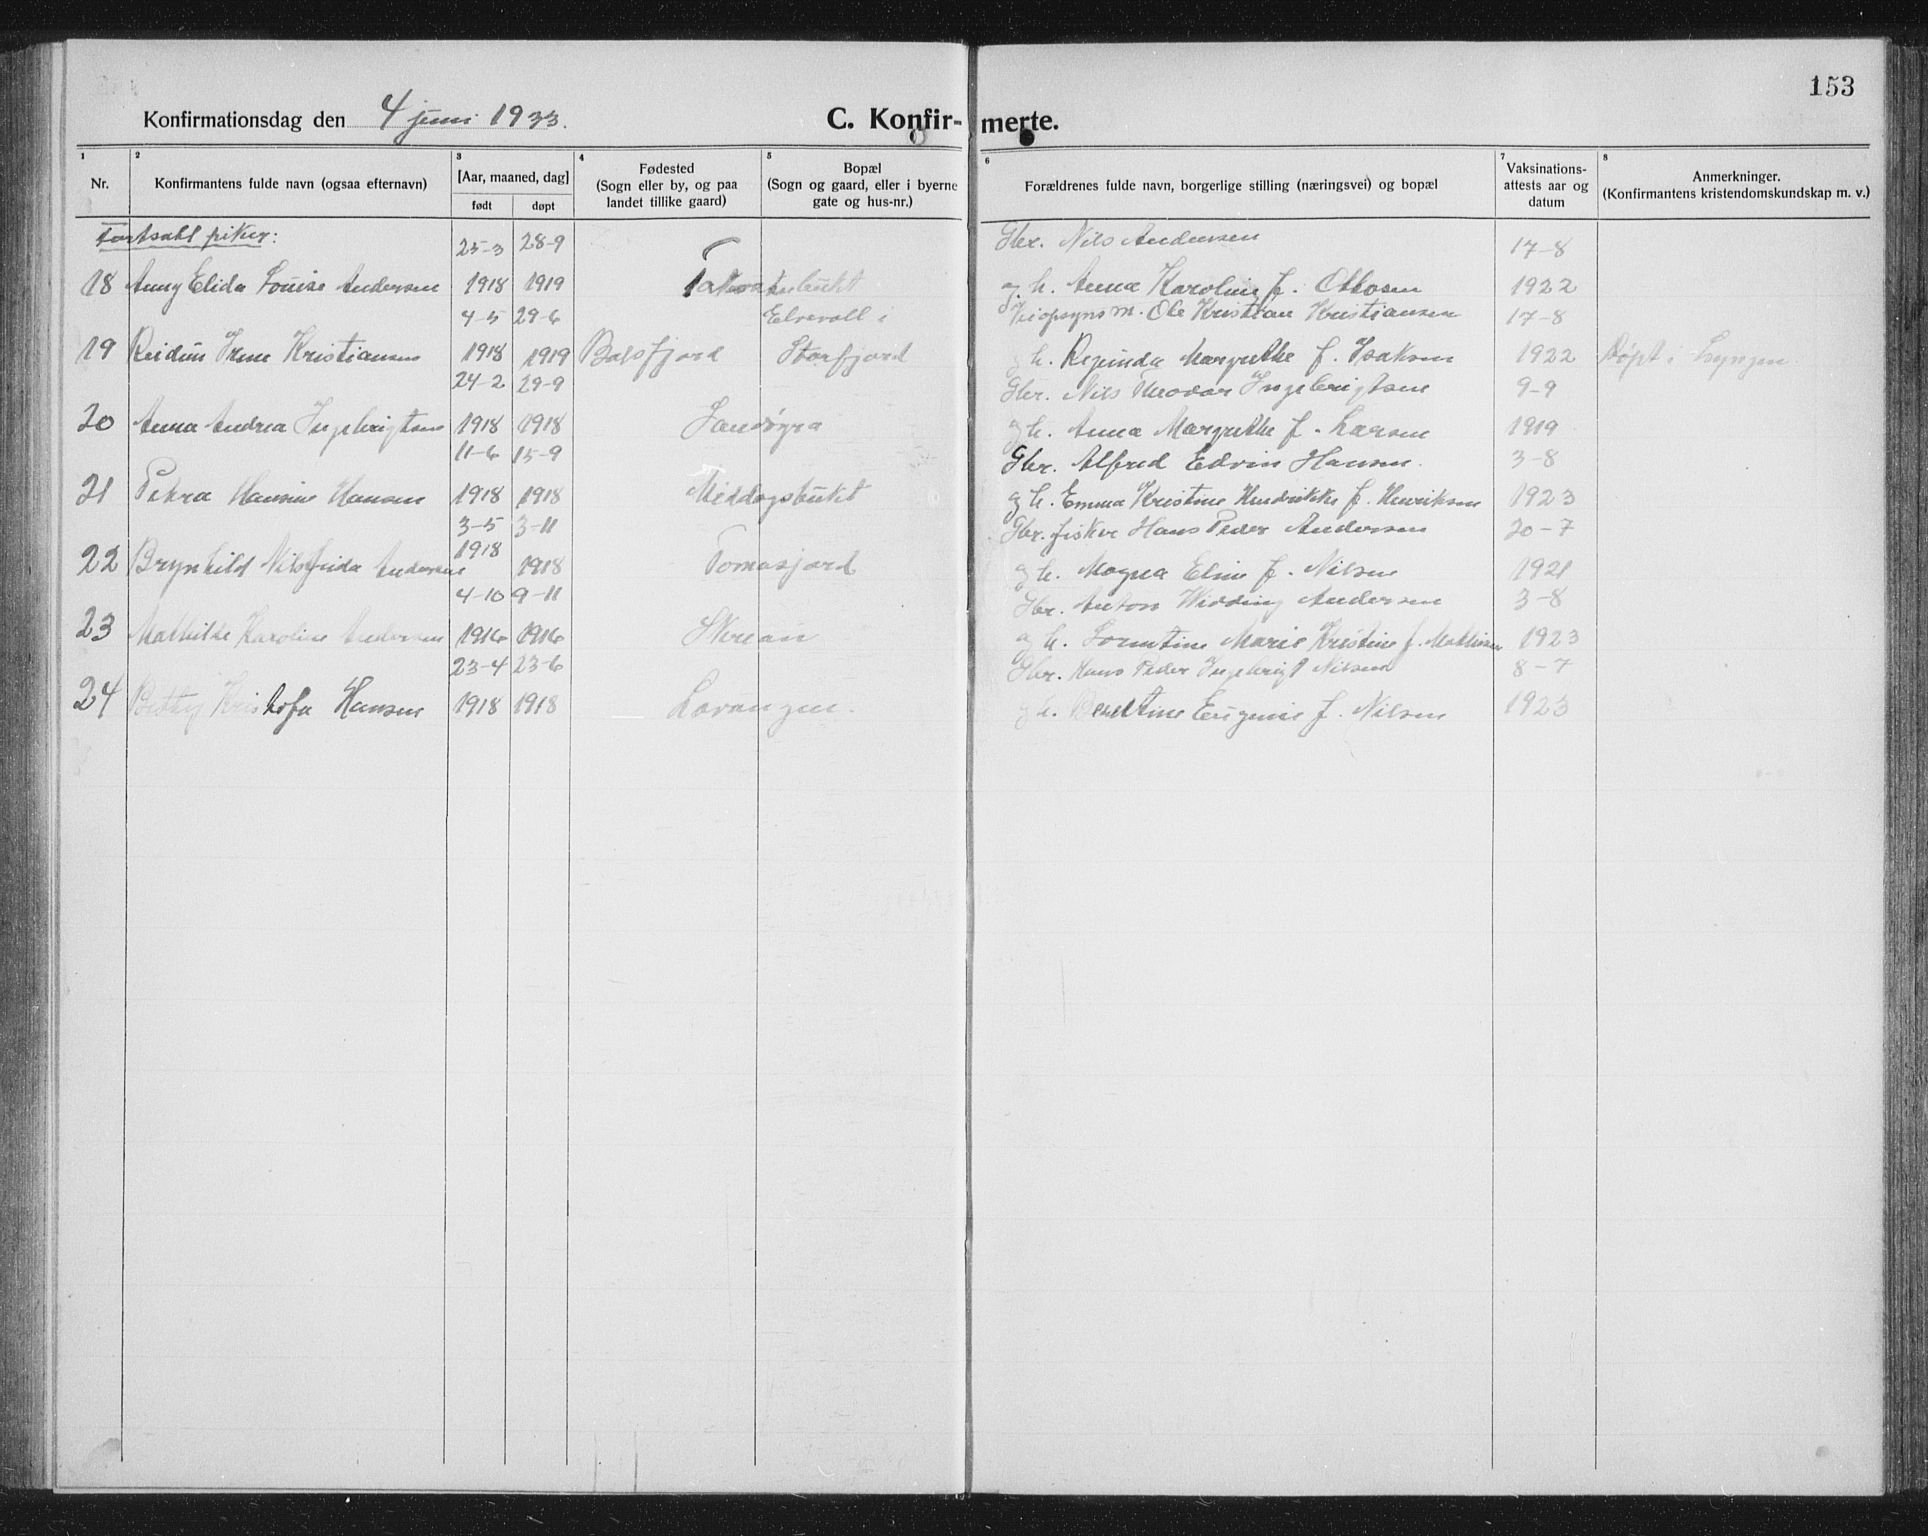 153
Konfirmationsdag den 4 juni 1933.
C. Konfirmerte.
1 2 3 4 5 6 7 8
Nr.
Konfirmantens fulde navn (ogsaa efternavn)
[Aar, maaned, dag]
født døpt
Fødested
(Sogn eller by, og paa
landet tillike gaard)
Bopæl
(Sogn og gaard, eller i byerne
gate og hus-nr.)
Forældrenes fulde navn, borgerlige stilling (næringsvei) og bopæl
Vaksinations-
attests aar og
datum
Anmerkninger.
(Konfirmantens kristendomskundskap m. v.)
Fortsatt piker:
25-3 28-9 Gbr. Nils Andersen 17-8
18 Anny Elida Louise Andersen 1918 1919 g. h. Anna Karoline f. Ottosen 1922
4-5 29-6 Elvevoll i Veiopsyns m. Ole Kristian Kristiansen 17-8
19 Reidun Irene Kristiansen 1918 1919 Balsfjord Storfjord g h. Reginda Margrethe f. Isaksen 1922 Døpt i Lyngen.
24-2 29-9 Gbr. Nils Theodor Ingebrigtsen 9-9
20 Anna Andrea Ingebrigtsen 1918 1918 Sandøyra g h. Anna Margrethe f. Larsen 1919
11-6 15-9 Gbr. Alfred Edvin Hansen. 3-8
21 Petra Hansine Hansen 1918 1918 Middagsbukt g h. Emma Kristine Hendrikke f. Henriksen 1923
3-5 3-11 Gbr. fisker Hans Peder Andersen 20-7
22 Brynhild Nilsfrida Andersen 1918 1918 Tomasjord g h. Magna Eline f. Nilsen 1921
4-10 9-11 Gbr. Anton Widding Andersen 3-8
23 Mathilde Karoline Andersen 1916 1916 g h. Marie Kristine f. Mathisen 1923
23-4 23-6 Gbr. Hans Peder Ingebrigt Nilsen 8-7
24 Betty Kristofa Hansen 1918 1918 Lavangen. g h. Beretine Eugenie f. Nilsen 1923